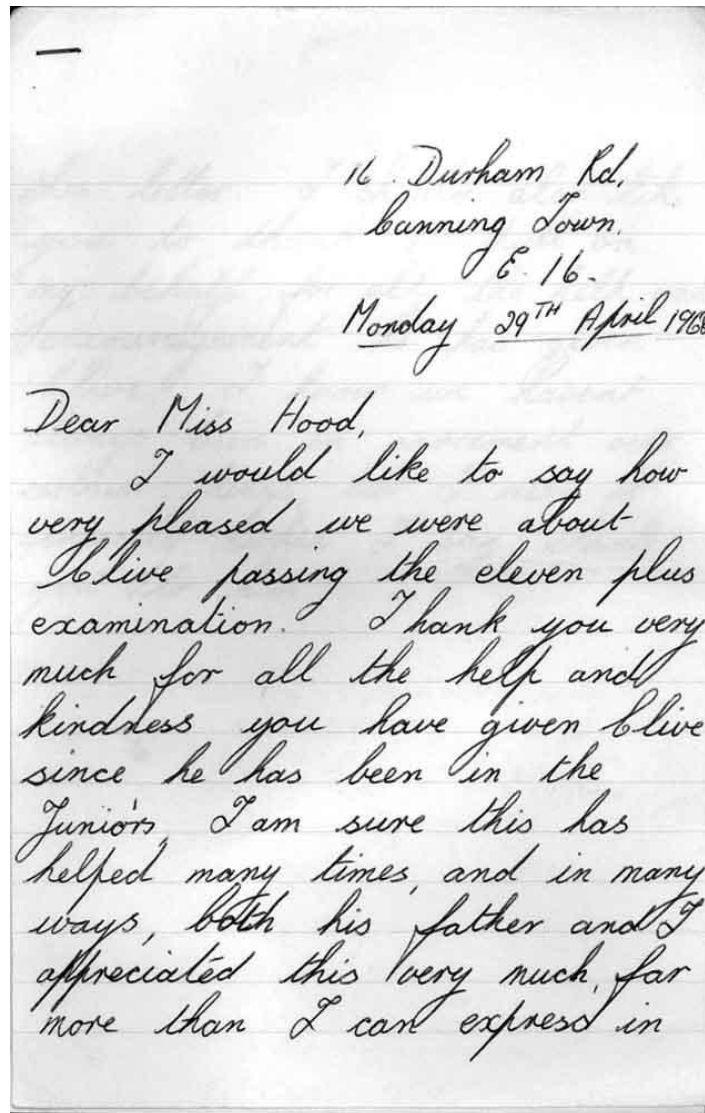 16. Durham Rd,
Canning Town.
E. 16.
Monday 29TH April 1968
Dear Miss Hood,
I would like to say how
very pleased we were about
Clive passing the eleven plus
examination. Thank you very
much for all the help and
kindness you have given Clive
since he has been in the
Junior's, I am sure this has
helped many times, and in many
ways, both his father and I
appreciated this very much, far
more than I can express in